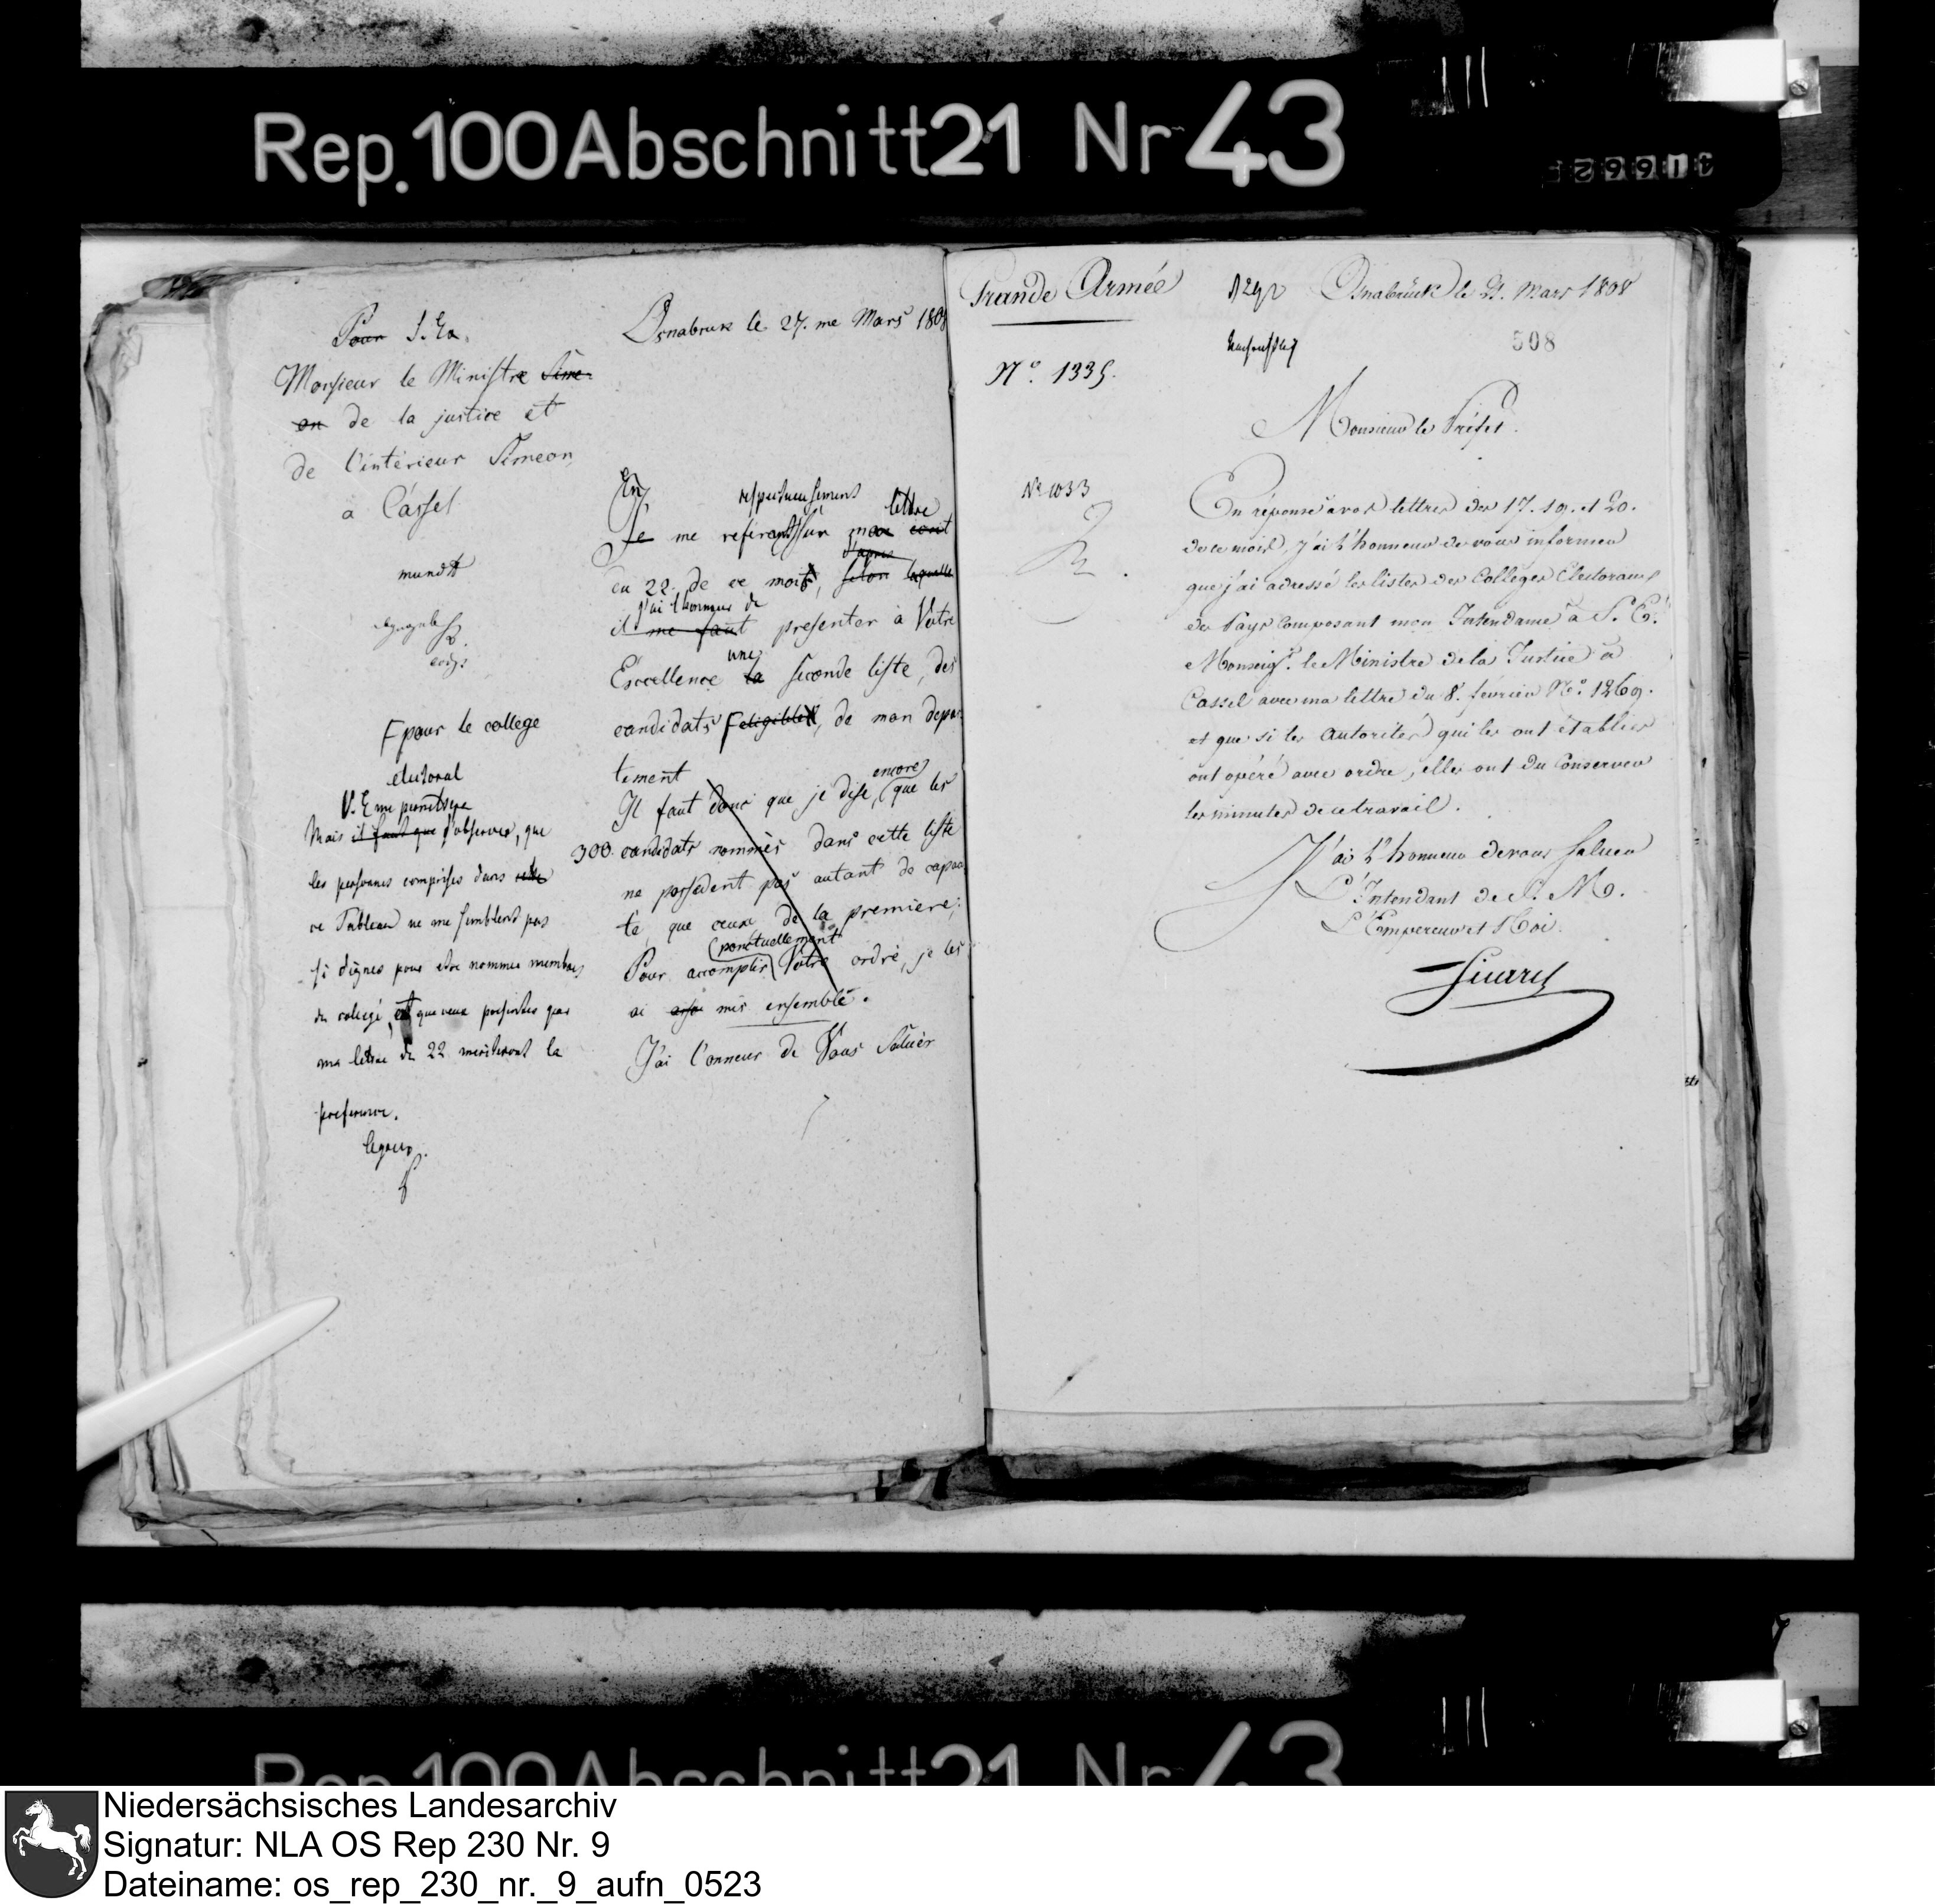 Rep. 100 Abschnitt 21 Nr 43
Pour S. Ex.
Monsieur le Ministre Sime-
on de la justice et
de l'intérieur Simeon
à Cassel
Osnabruk le 27. me Mars 1808
En respectueusement lettre
Je me referant sur mon
du 22. de ce mois, d'apres selon laquelle
j'ai l'honneur de
il me faut presenter à Votre
une
Excellence la seconde liste, des
candidats F eligibles, de mon depar
tement
F pour le college
electoral
encore
Il faut donc que je dise, que les
300 candidats nommés dans cette liste
ne possedent pas autant de capaci
té, que ceux de la premiere;
ponctuellement
Pour accomplir Votre ordre, je les
ai mis ensemble.
J'ai l'onneur de Vous saluèr
V. E me
Mais il faut que j'observer, que
les personnes comprises dans cette
ce Tableau ne me semblent pas
si dignes pour etre nommés membres
du college, et que ceux presentes par
ma lettre du 22 meriteront la
preference.
Grande Armée
Osnabrück le 21. Mars 1808
508
N.° 1335.
Monsieur le Préfet.
N. 1033
En réponse à vos lettres des 17. 19. et 20.
de ce mois, j'ai l'honneur de vous informer
que j'ai adressé les listes des Collèges Electoraux
du Pays composant mon Intendance à S. E.
Monseigr. le Ministre de la Justice à
Cassel avec ma lettre du 8. février N.° 1269.
et que si les autorités qui les ont établies
ont opéré avec ordre, elles ont du conserver
les minutes de ce travail.
J'ai l'honneur de vous saluer
L'Intendant de S. M.
L'Empereur et Roi
Niedersächsisches Landesarchiv
Signatur: NLA OS Rep 230 Nr. 9
Dateiname: os_rep_230_nr._9_aufn_0523